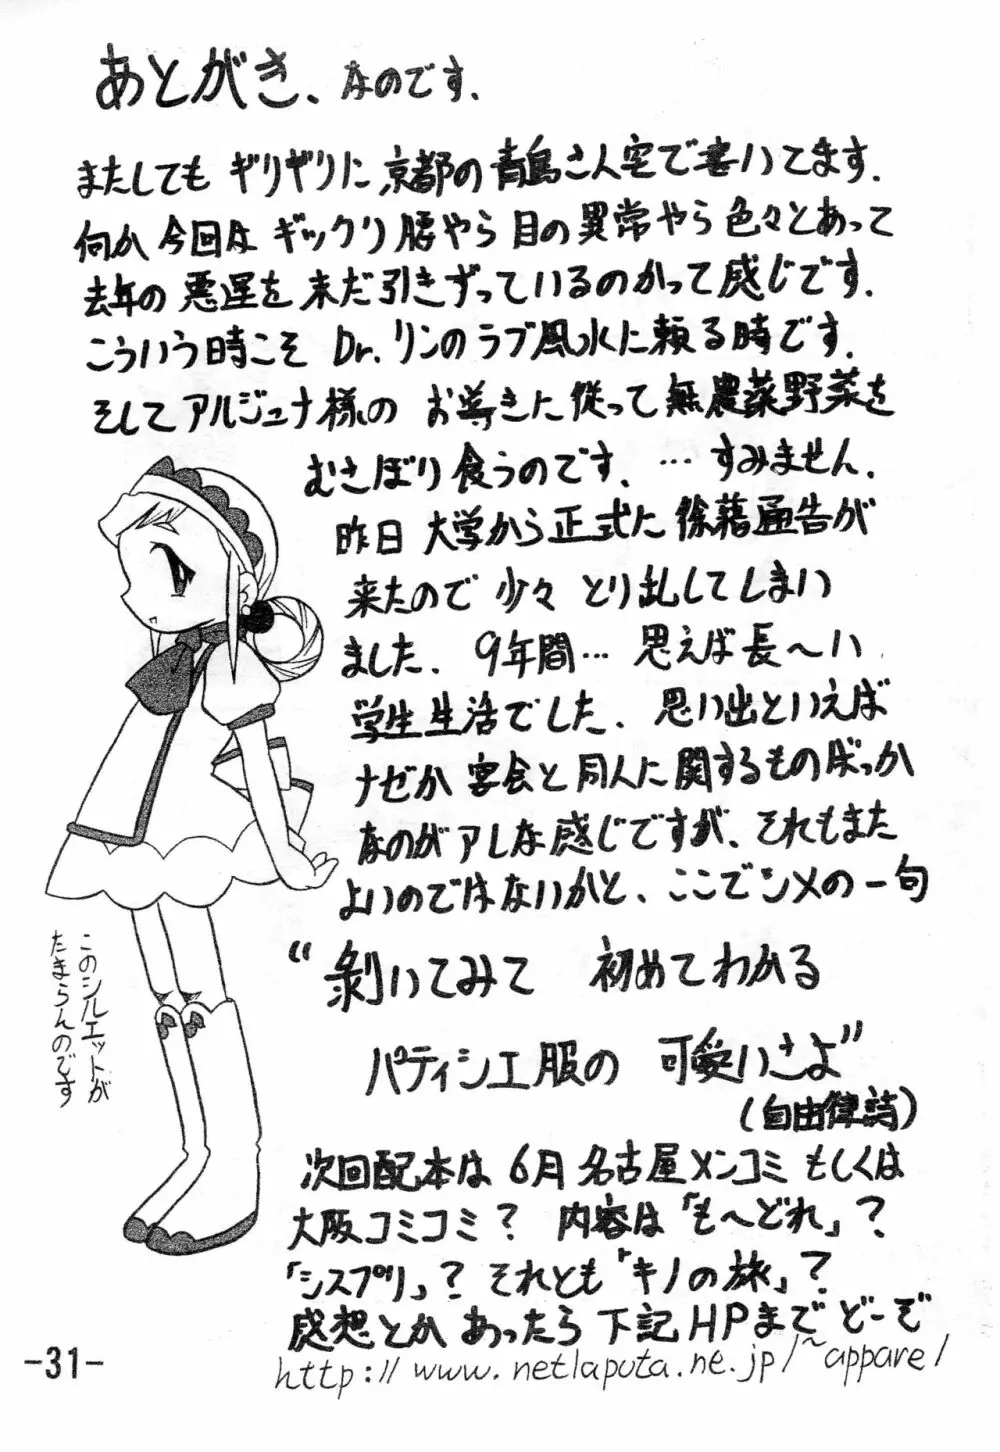 あとがき、なのです.
またしても ギリギリに 京都の青島さん宅で書いてます.
何か 今回は ギックリ腰やら 目の異常やら 色々とあって
去年の 悪運を 未だ引きずっているのかって感じです.
こういう時こそ Dr.リンのラブ風水に頼る時です.
そしてアルジュナ様の お導きに従って無農薬野菜を
むさぼり食うのです. … すみません.
昨日 大学から正式に 徐籍通告が
来たので 少々 とり乱してしまい
ました. 9年間… 思えば長〜い
学生生活でした. 思い出といえば
ナゼか 宴会と同人に関するものばっか
なのがアレな感じですが、それもまた
よいのではないかと、ここでシメの一句
“剥いてみて 初めてわかる
パティシエ服の 可愛いさよ”
(自由律詩)
このシルエットが
たまらんのです
次回配本は 6月 名古屋メンコミ もしくは
大阪コミコミ? 内容は「も〜どれ」?
「シスプリ」? それとも「キノの旅」?
感想とか あったら 下記HPまで どーぞ
http://www.netlaputa.ne.jp/~appare/
-31-